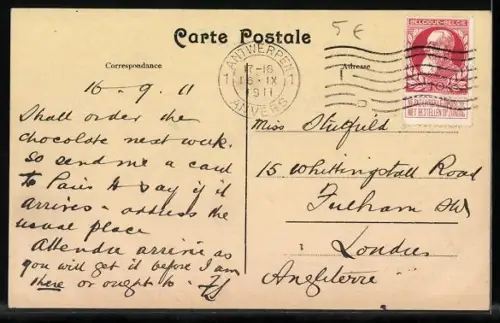 5 €
Carte Postale
Correspondance
Adresse
1 ANTWERPEN 1
17-18
16-IX
1911
ANVERS
BELGIQUE-BELGIË
NIET BESTELLEN OP ZONDAG
16-9.11
Shall order the
chocolate next week.
So send me a card
to Paris to say if it
arrives - address the
usual place
Attendre arrivée as
you will get it before I am
there or ought to -
Miss Stutfield
15. Whittingstall Road
Fulham SW
Londres
Angleterre